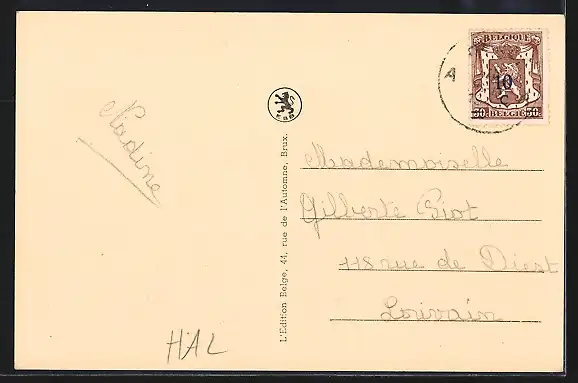 Nadine
HAL
L'Edition Belge, 44, rue de l'Automne, Brux.
BELGIQUE
10
30 BELGIE 30
A
Mademoiselle
Gilberte Giot
118 rue de Diest
Louvain